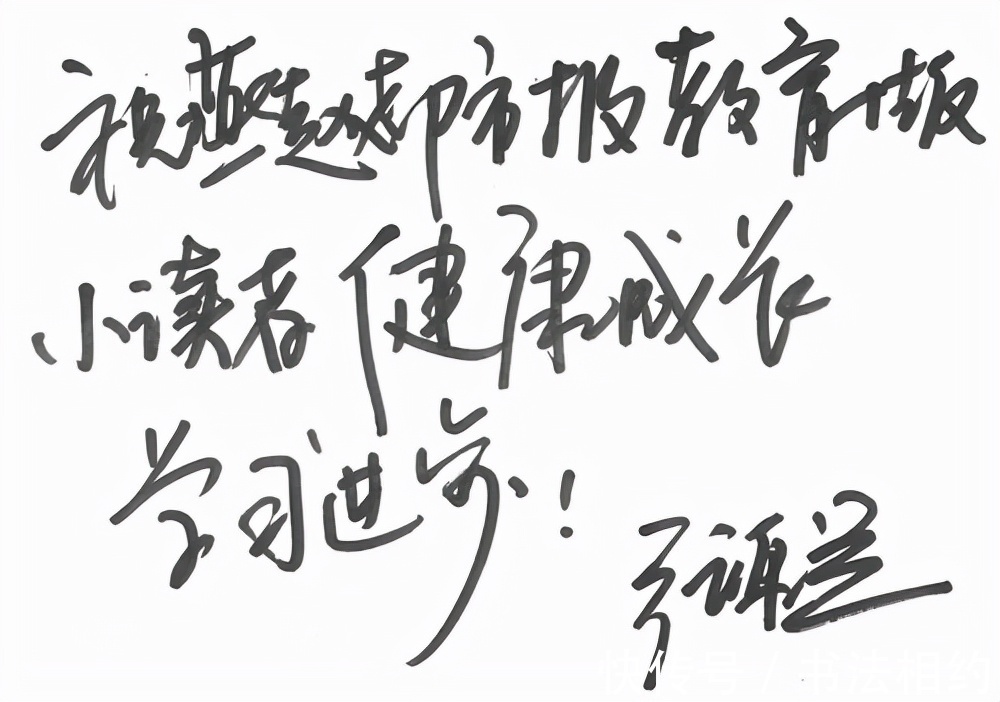 祝燕赵都市报教育版
小读者健康成长
学习进步!
快传号 / 书法相约